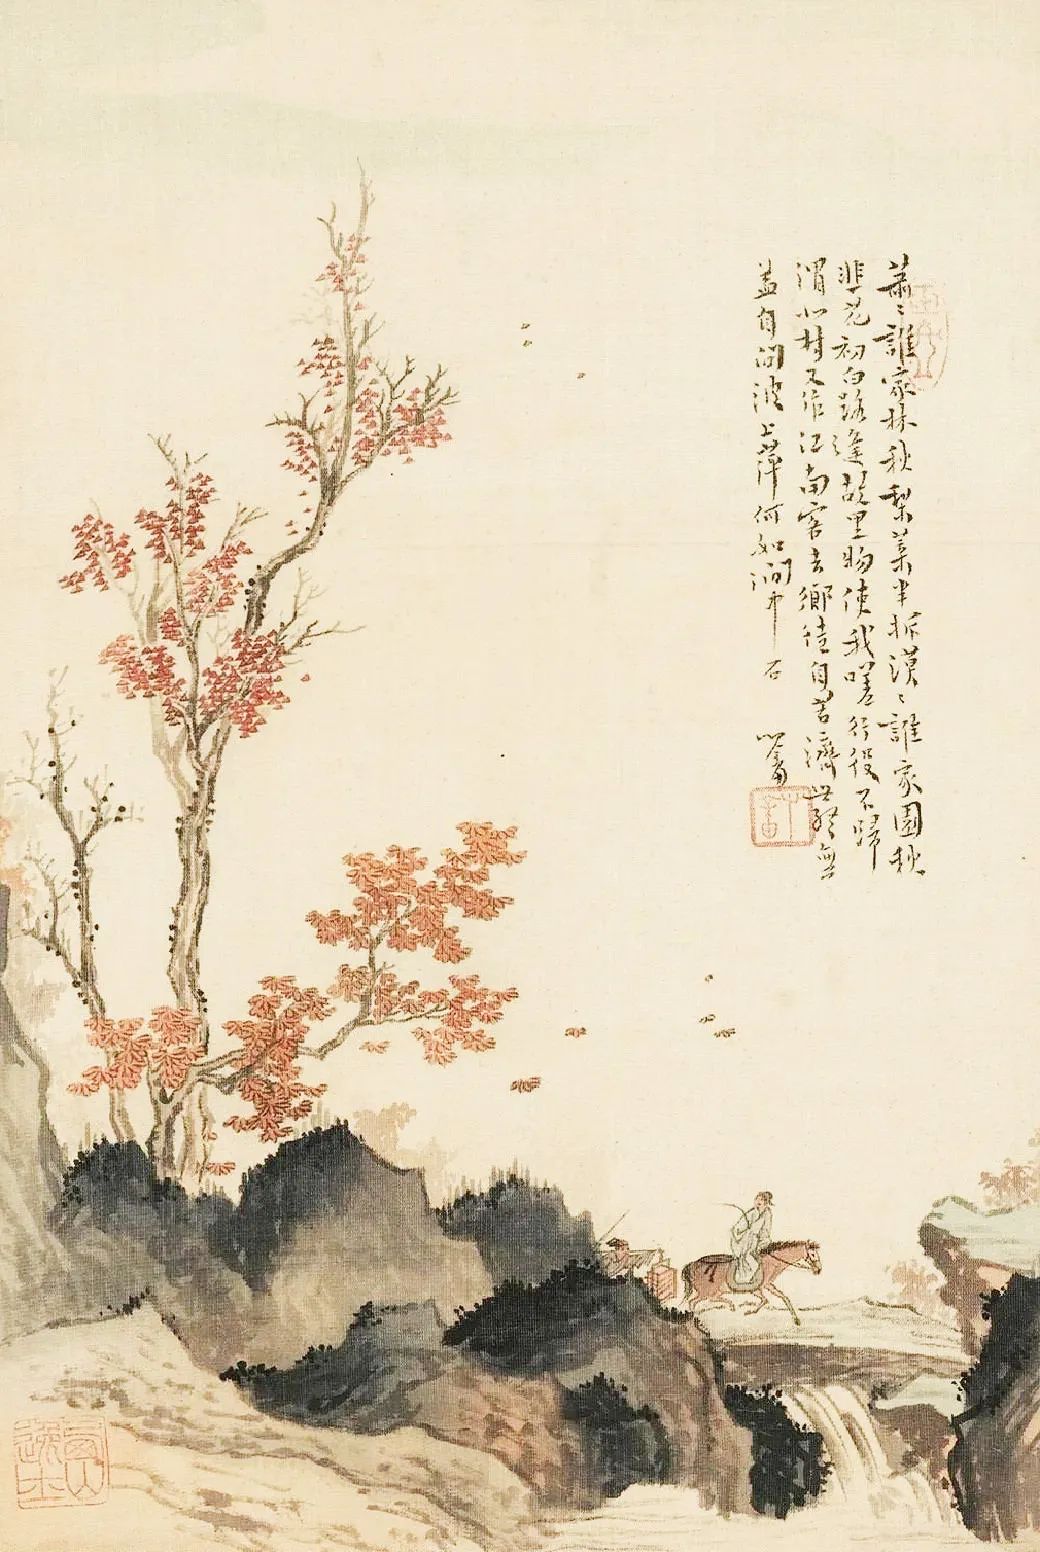 蕭〻誰家林秋梨葉半拆漠〻誰家園秋
韭花初白路逢故里物使我嗟行役不歸
渭北村又作江南客去鄉徒自苦濟世終無
益自問波上萍何如澗中石 心畬